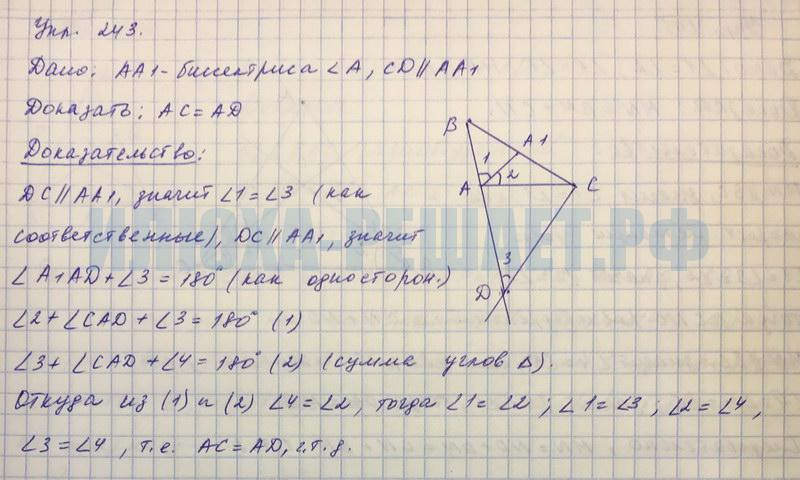 Упр. 243.
Дано: AA1 - биссектриса ∠A, CD∥AA1
Доказать: AC = AD
Доказательство:
DC∥AA1, значит ∠1 = ∠3 (как
соответственные), DC∥AA1, значит
∠A1AD + ∠3 = 180° (как односторон.)
∠2 + ∠CAD + ∠3 = 180° (1)
∠3 + ∠CAD + ∠4 = 180° (2) (сумма углов Δ).
Откуда из (1) и (2) ∠4 = ∠2, тогда ∠1 = ∠2; ∠1 = ∠3; ∠2 = ∠4,
∠3 = ∠4, т.е. AC = AD, ч.т.д.
B
A1
1
2
A
C
3
D
ИЛЮХА-РЕШАЕТ.РФ